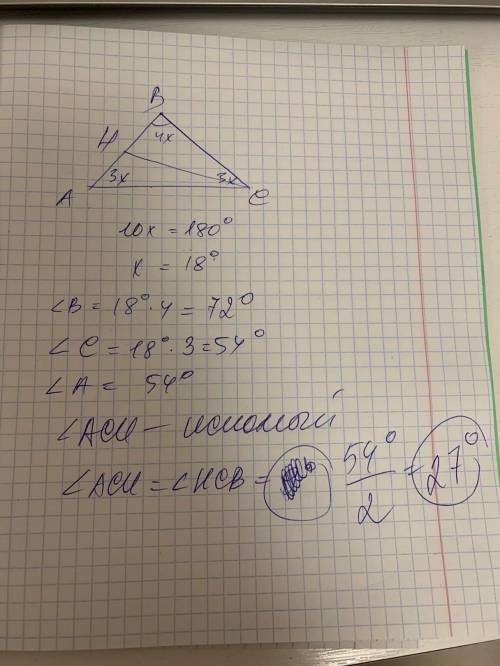 B
4x
H
3x
3x
A
C
10x = 180°
x = 18°
∠B = 18° · 4 = 72°
∠C = 18° · 3 = 54°
∠A = 54°
∠ACH — искомый
∠ACH = ∠HCB = 54°/2 = 27°